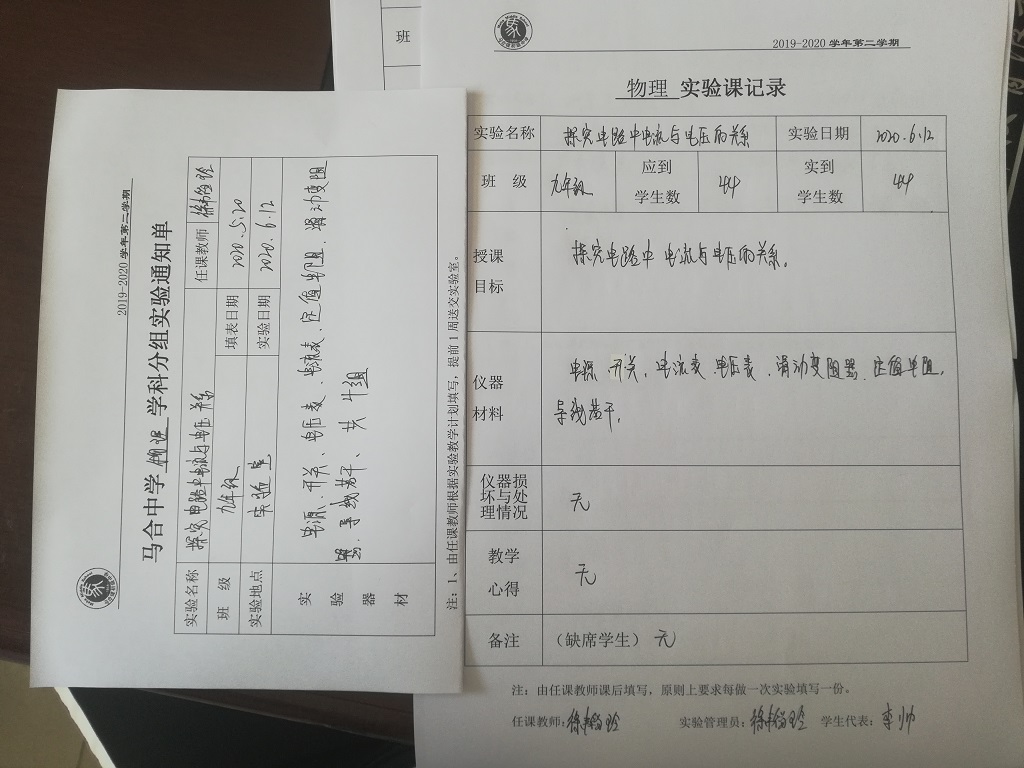 2019-2020 学年第二学期
马合中学 物理 学科分组实验通知单
实验名称 探究电路中电流与电压关系 任课教师
班 级 九年级 填表日期 2020.5.20
实验地点 实验室 实验日期 2020.6.12
实验器材 电源、开关、电压表、电流表、定值电阻、滑动变阻
器、导线若干、共 组
注:1、由任课教师根据实验教学计划填写,提前1周送交实验室。
班
2019-2020 学年第二学期
物理 实验课记录
实验名称 探究电路中电流与电压的关系 实验日期 2020.6.12
班 级 九年级 应到学生数 44 实到学生数 44
授课目标 探究电路中电流与电压的关系。
仪器材料 电源、开关、电流表、电压表、滑动变阻器、定值电阻、
导线若干。
仪器损坏与处理情况 无
教学心得 无
备注 (缺席学生) 无
注:由任课教师课后填写,原则上要求每做一次实验填写一份。
任课教师: 实验管理员: 学生代表:李帅